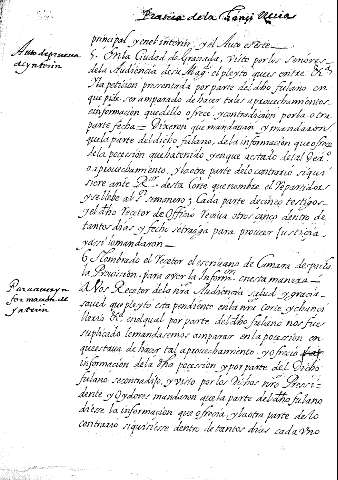 Practica de la Chanzilleria
principal, y en el interin, y el Auto es este
Auto de prueva
de ynterin
5. En la Ciudad de Granada, Visto por los señores
de la Audiencia de su Mag.d el pleyto que es entre
Y la peticion presentada por parte del dho fulano en
que pide ser amparado de hacer tales aprovechamientos
e informacion que dello ofrece, y contradicion por la otra
parte fecha = Dixeron que mandavan, y mandaron
que la parte del dicho fulano, de la informacion que ofrece
de la posesion que ha tenido, y en que a estado de la
o aprovechamiento, y la otra parte de lo contrario si qui
siere ante R.or desta Corte que nombre el Repartidor
y se llebe al Semanero; Cada parte de cinco testigos
y el dho Recetor de Officio reciva otros cinco dentro de
tantos dias, y fecho se traiga para proveer Justicia
y assi lo mandaron
6. Nombrado el Recetor el escrivano de Camara despacha
la Provission para aver la Inform.on en esta manera
Para aver yn
formacion de
ynterin
A Vos Recetor de la nra Audiencia salud, y gracia
saved que pleyto esta pendiente en la nra Corte, y chanci
lleria R.l en el qual por parte del dho fulano nos fue
suplicado le mandasemos amparar en la posesion en
que estava de hacer tal aprovechamiento, y ofrecio
informacion de la dha posesion, y por parte del Dicho
fulano se contradijo, y visto por los Dichos nro Presi
dente, y Oydores mandaron que la parte del dho fulano
diesse la informacion que ofrecia, y la otra parte de lo
contrario si quisiesse dentro de tantos dias cada uno